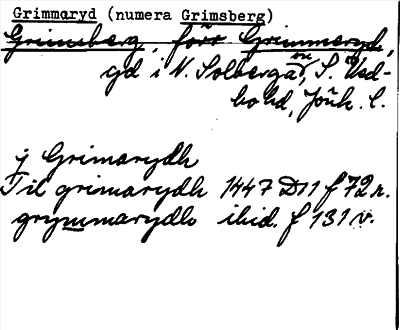 Grimmaryd (numera Grimsberg)
Grimsberg, förr Grimmaryd,
gd i N. Solberga sn, S. Ved-
bo hd, Jönk. l.
j Grimarydh
Til grimarydh 1447 D11 f 72 r.
grymmarydh ibid. f 131 v.